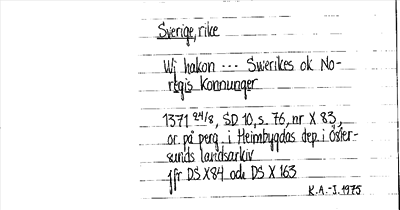 Sverige, rike
Wi hakon --- Swerikes ok No-
regis Konnunger
1371 24/8, SD 10, s. 76, nr X 83,
or. på perg. i Heimbygdas dep. i Öster-
sunds landsarkiv
jfr DS X 84 och DS X 163
K.A.-J. 1975